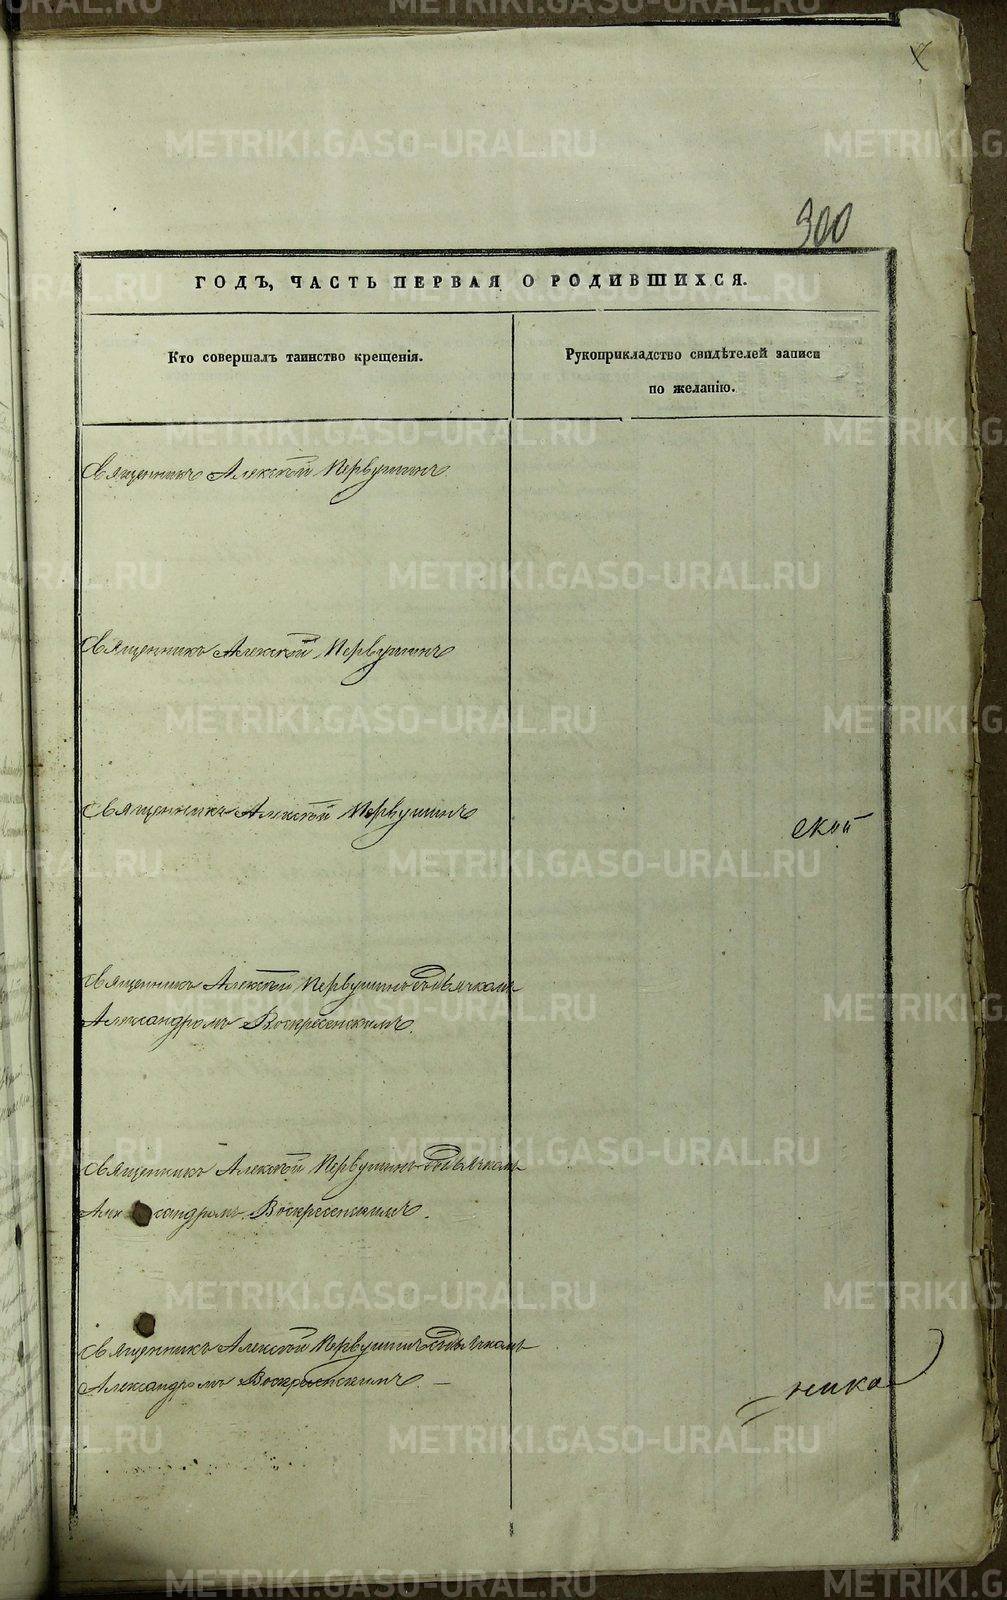 300
ГОДЪ, ЧАСТЬ ПЕРВАЯ О РОДИВШИХСЯ.
Кто совершалъ таинство крещенія.
Рукоприкладство свидѣтелей записи
по желанію.
Священникъ Алексѣй Первушинъ.
Священникъ Алексѣй Первушинъ
Священникъ Алексѣй Первушинъ
ской
Священникъ Алексѣй Первушинъ съ дьячкомъ
Александромъ Воскресенскимъ.
Священникъ Алексѣй Первушинъ съ дьячкомъ
Александромъ Воскресенскимъ.
Священникъ Алексѣй Первушинъ съ дьячкомъ
Александромъ Воскресенскимъ. —
ника
METRIKI.GASO-URAL.RU